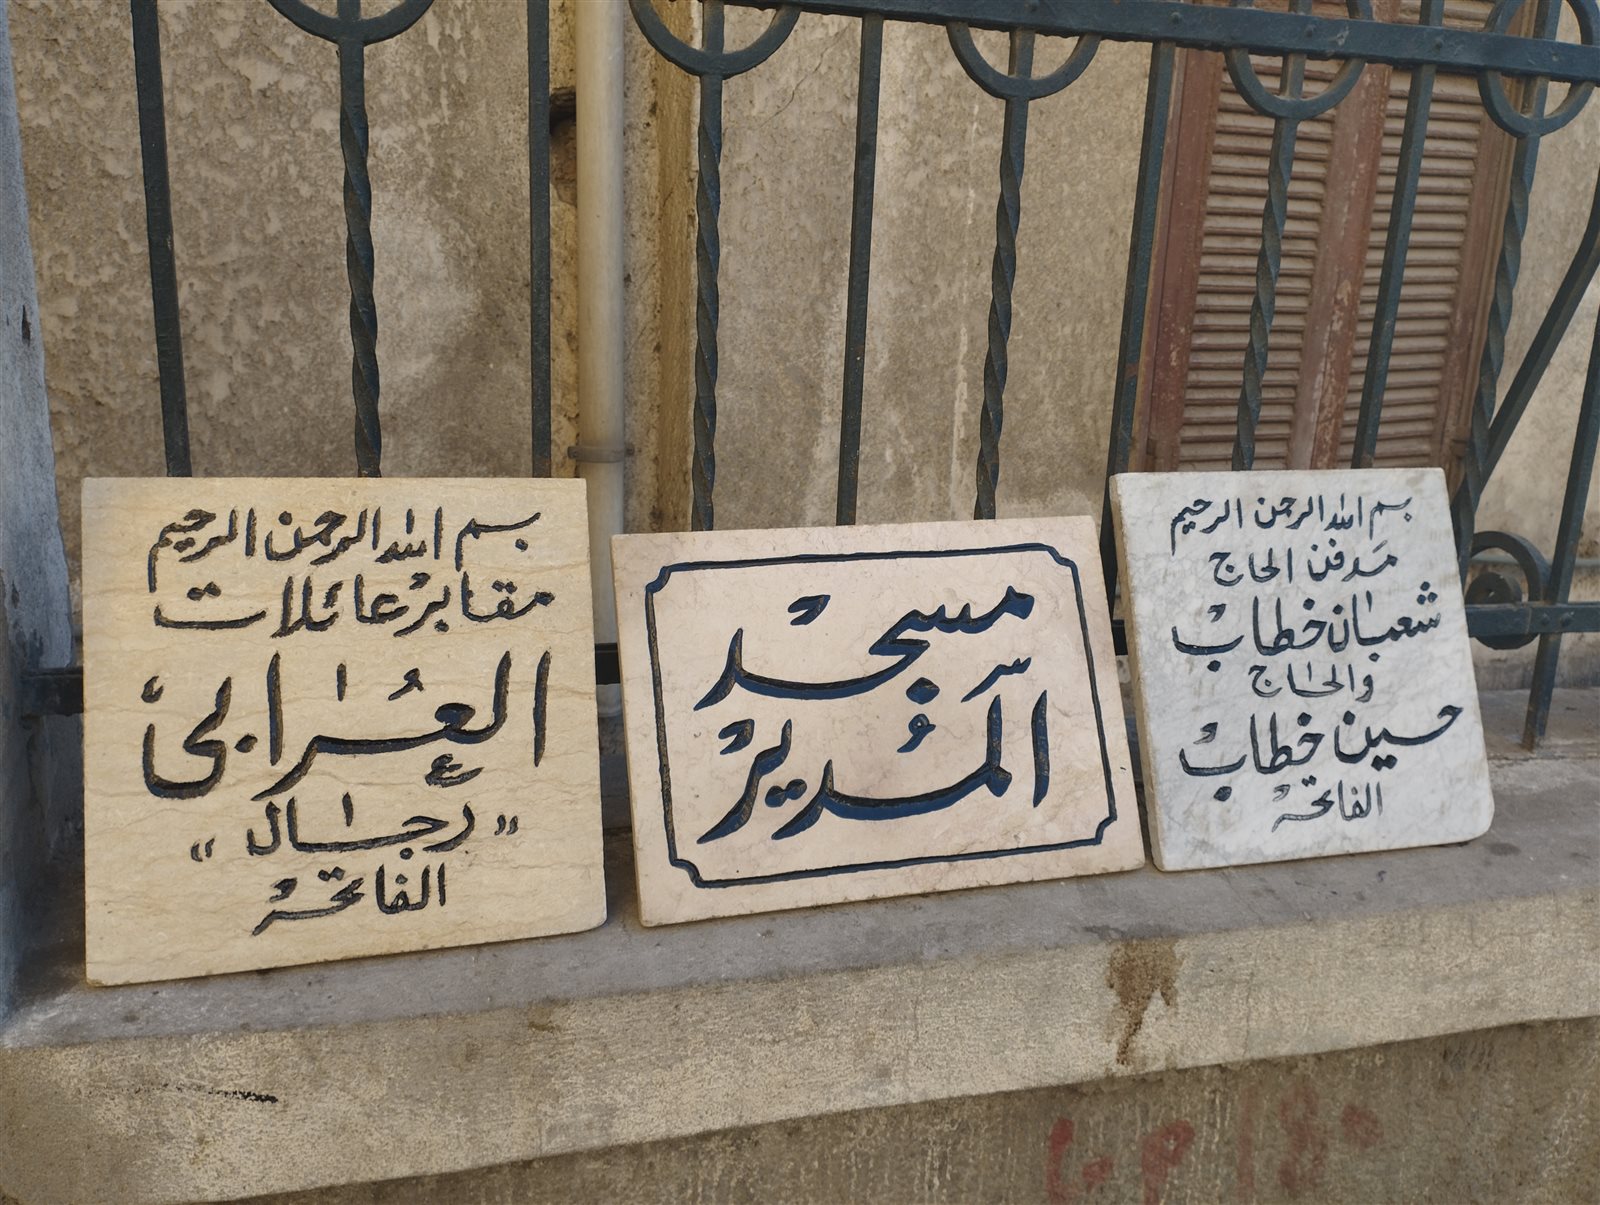 بسم الله الرحمن الرحيم
مقابر عائلات
العرابي
"رجال"
الفاتحة
مسجد
المدير
بسم الله الرحمن الرحيم
مدفن الحاج
شعبان خطاب
والحاج
حسين خطاب
الفاتحة